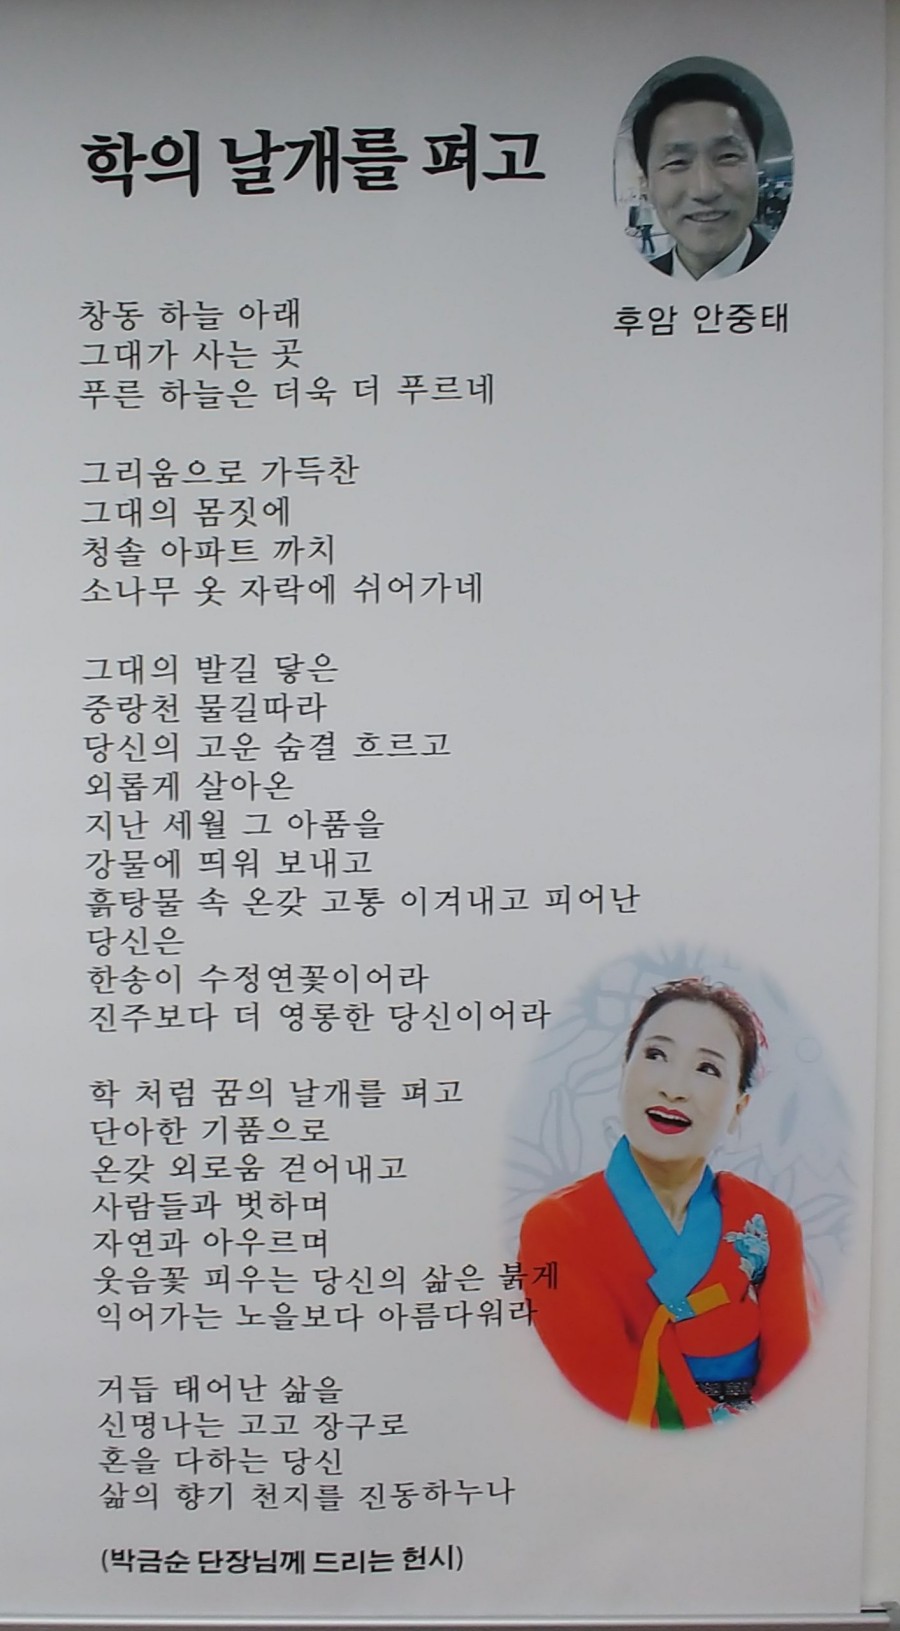 학의 날개를 펴고
후암 안중태
창동 하늘 아래
그대가 사는 곳
푸른 하늘은 더욱 더 푸르네
그리움으로 가득찬
그대의 몸짓에
청솔 아파트 까치
소나무 옷 자락에 쉬어가네
그대의 발길 닿은
중랑천 물길따라
당신의 고운 숨결 흐르고
외롭게 살아온
지난 세월 그 아픔을
강물에 띄워 보내고
흙탕물 속 온갖 고통 이겨내고 피어난
당신은
한송이 수정연꽃이어라
진주보다 더 영롱한 당신이어라
학 처럼 꿈의 날개를 펴고
단아한 기품으로
온갖 외로움 걷어내고
사람들과 벗하며
자연과 아우르며
웃음꽃 피우는 당신의 삶은 붉게
익어가는 노을보다 아름다워라
거듭 태어난 삶을
신명나는 고고 장구로
혼을 다하는 당신
삶의 향기 천지를 진동하누나
(박금순 단장님께 드리는 헌시)